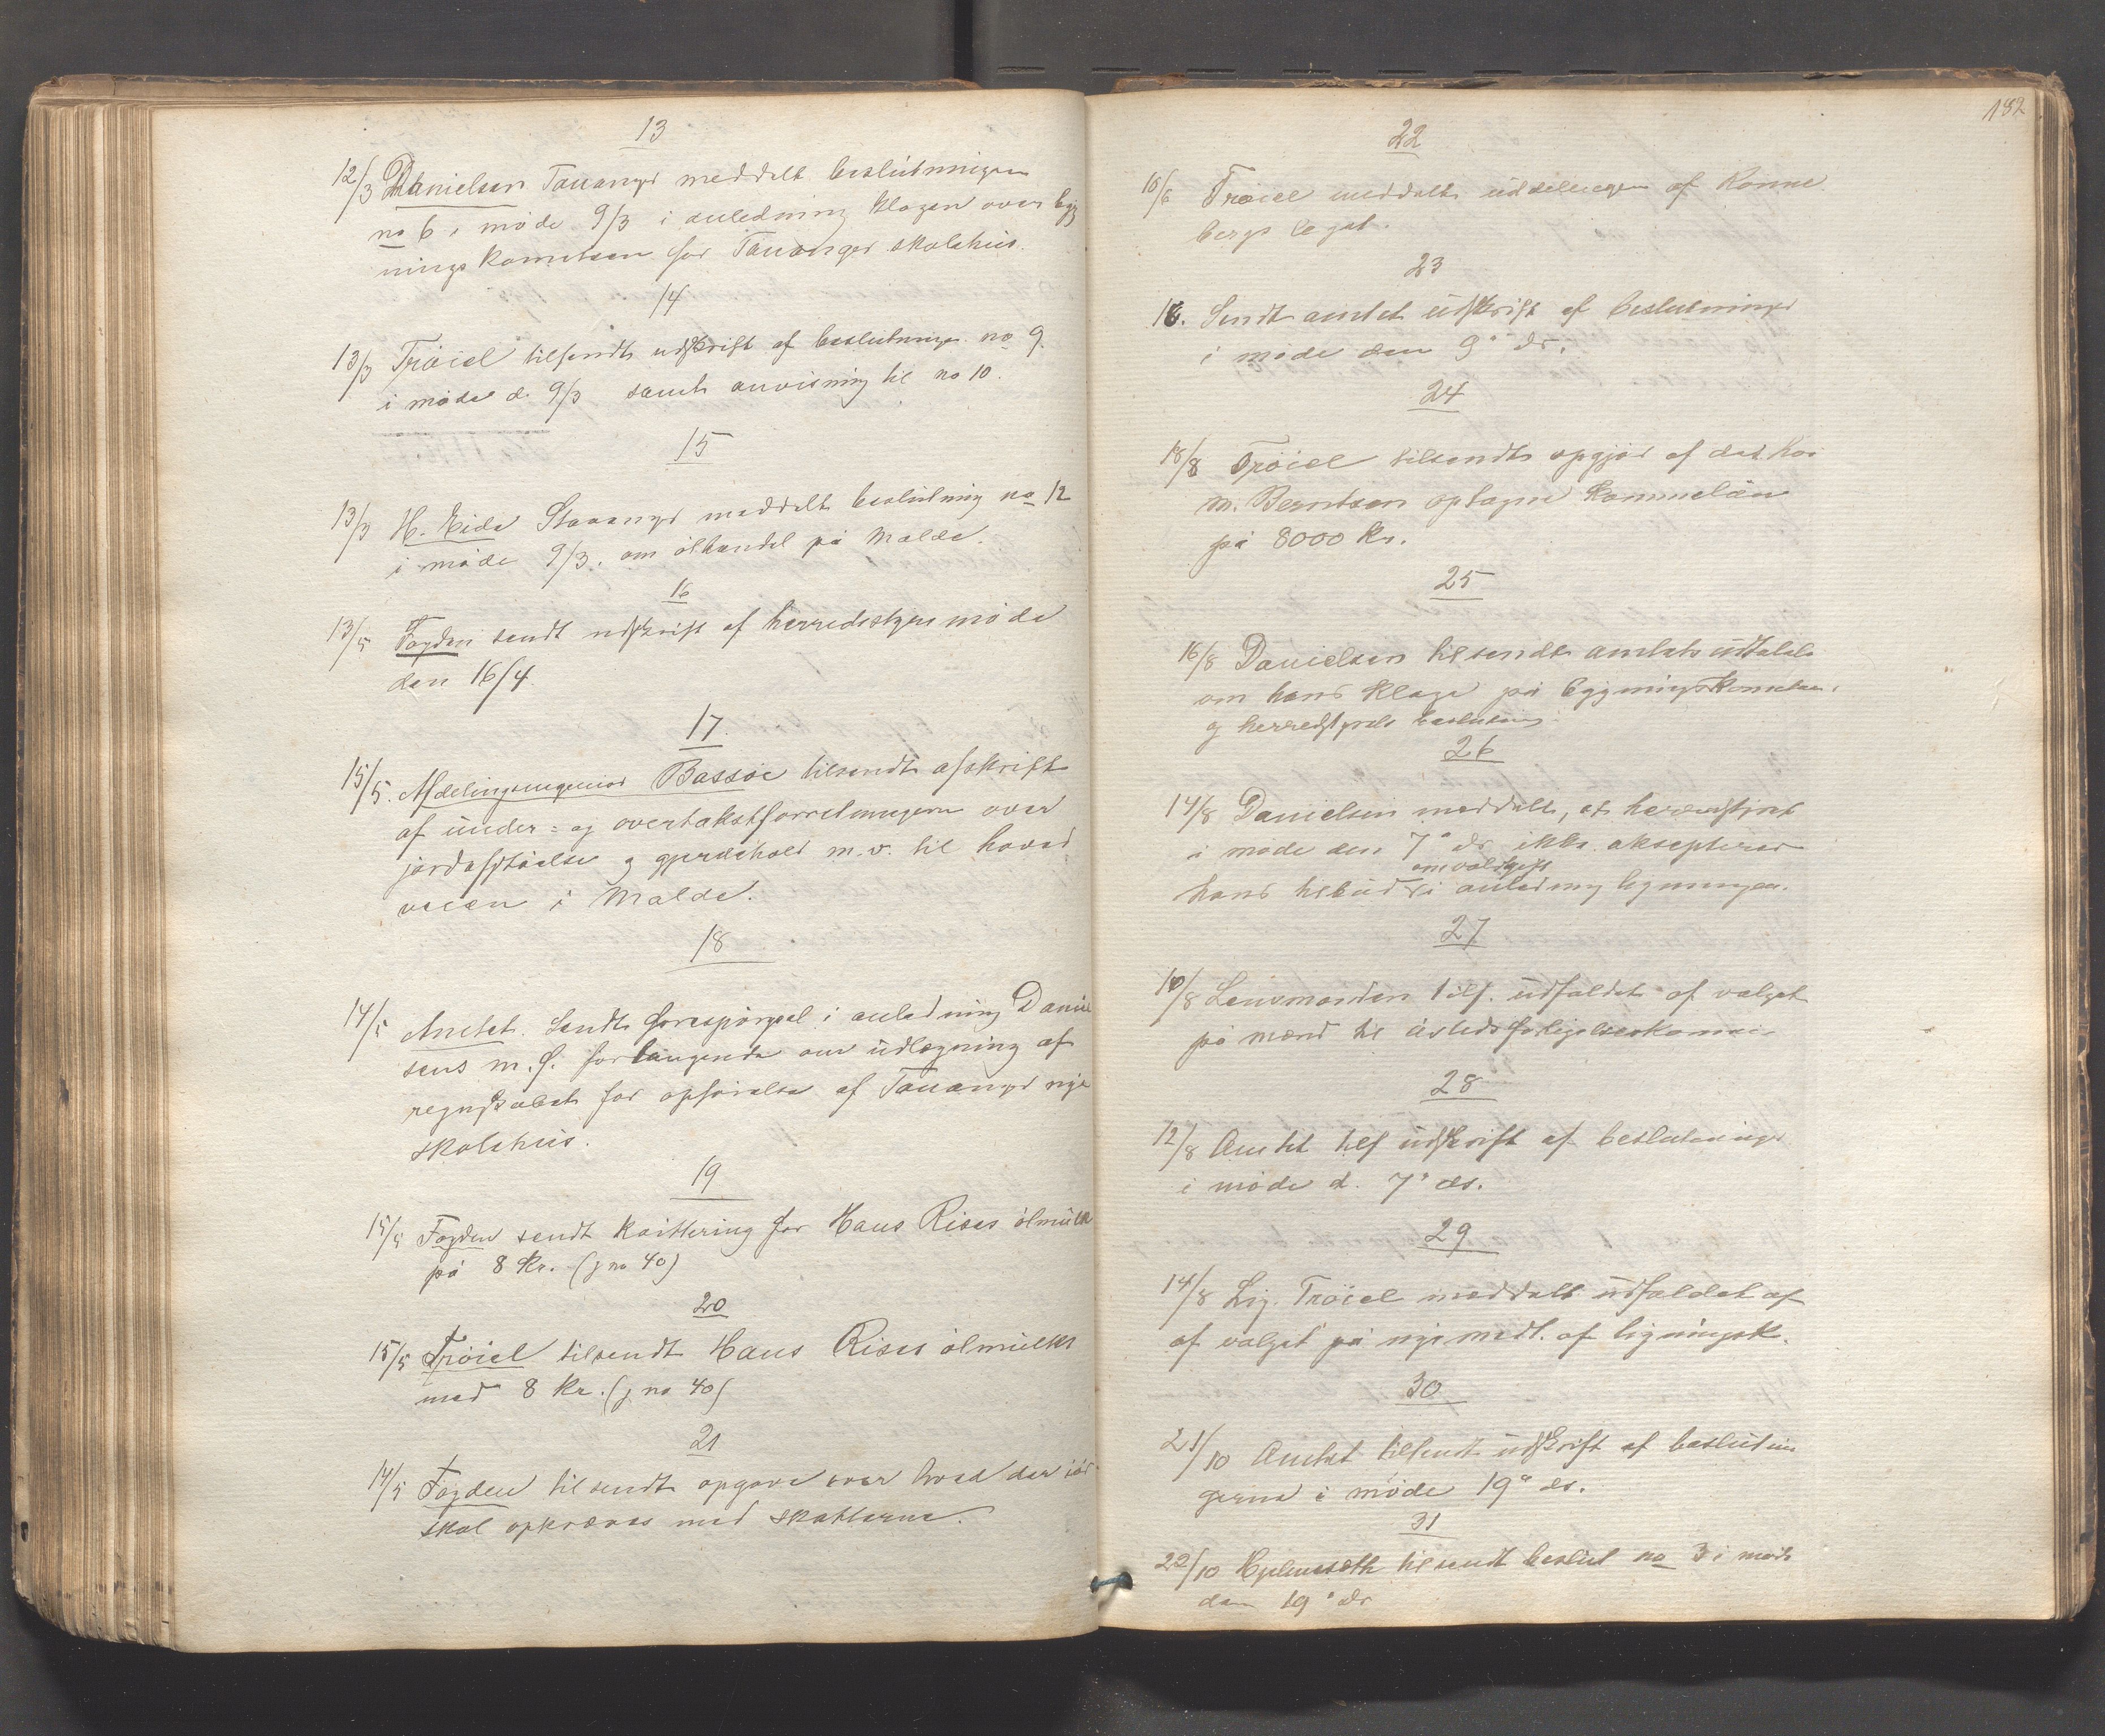 13
12/3 Danielsen Tananger meddelt beslutningen
no 6 i møde 9/3 i anledning klagen over byg
nings komiteen for Tananger skolehus.
14
13/3 Trøiel tilsendt udskrift af beslutninger no 9
i møde d. 9/3 samt anvisning til no 10.
15
13/3 H. Eide Stavanger meddelt beslutning no 12
i møde 9/3. om ølhandel på Malde.
16
13/5 Fogden sendt udskrift af herredsstyremøde
den 16/4
17.
15/5. Afdelingsingeniør Bassøe tilsendt afskrift
af under- og overtakstforretningerne over
jordafståelse og gjerdehold m.v. til hoved
veien i Malde.
18
14/5 Amtet. Sendt forespørgsel i anledning Daniel
sens m. fl. forlangende om udlægning af
regnskabet for opførelse af Tananger nye
skolehus.
19
15/5 Fogden sendt kvittering for Hans Rises ølmulkt
på 8 Kr. (j no 40)
20
15/5 Trøiel tilsendt Hans Rises ølmulkt
med 8 kr. (j no 40)
21
14/5 Fogden tilsendt opgave over hvad der iår
skal opkræves med skatterne.
182
22
10/6 Trøiel meddelt uddelingen af Konne
bergs legat.
23
16. Sendt amtet udskrift af beslutninger
i møde den 9de ds.
24
18/8 Trøiel tilsendt opgjør af det hos
M. Berntsen optagne kommelån
på 8000 Kr.
25
16/8 Danielsen tilsendt amtets udtalelse
om hans klage på bygningskomiteen.
og herredsstyrets beslutning.
26
14/8 Danielsen meddelt, at herredsstyret
i møde den 7de ds ikke aksepterer
om voldgift
hans tilbud i anledning ligningen.
27
10/8 Lensmanden tils. udfaldet af valget
på mænd til åstedsforligelseskommis
28
12/8 Amtet tils udskrift af beslutninger
i møde d. 7de ds.
29
14/8 Lig. Trøiel meddelt udfaldet af
af valget på nye medl. af ligningsk.
30
21/10 Amtet tilsendt udskrift af beslutnin
gerne i møde 19de ds.
31
22/10 Hjelmesæth tilsendt beslut no 3 i møde
den 19de ds